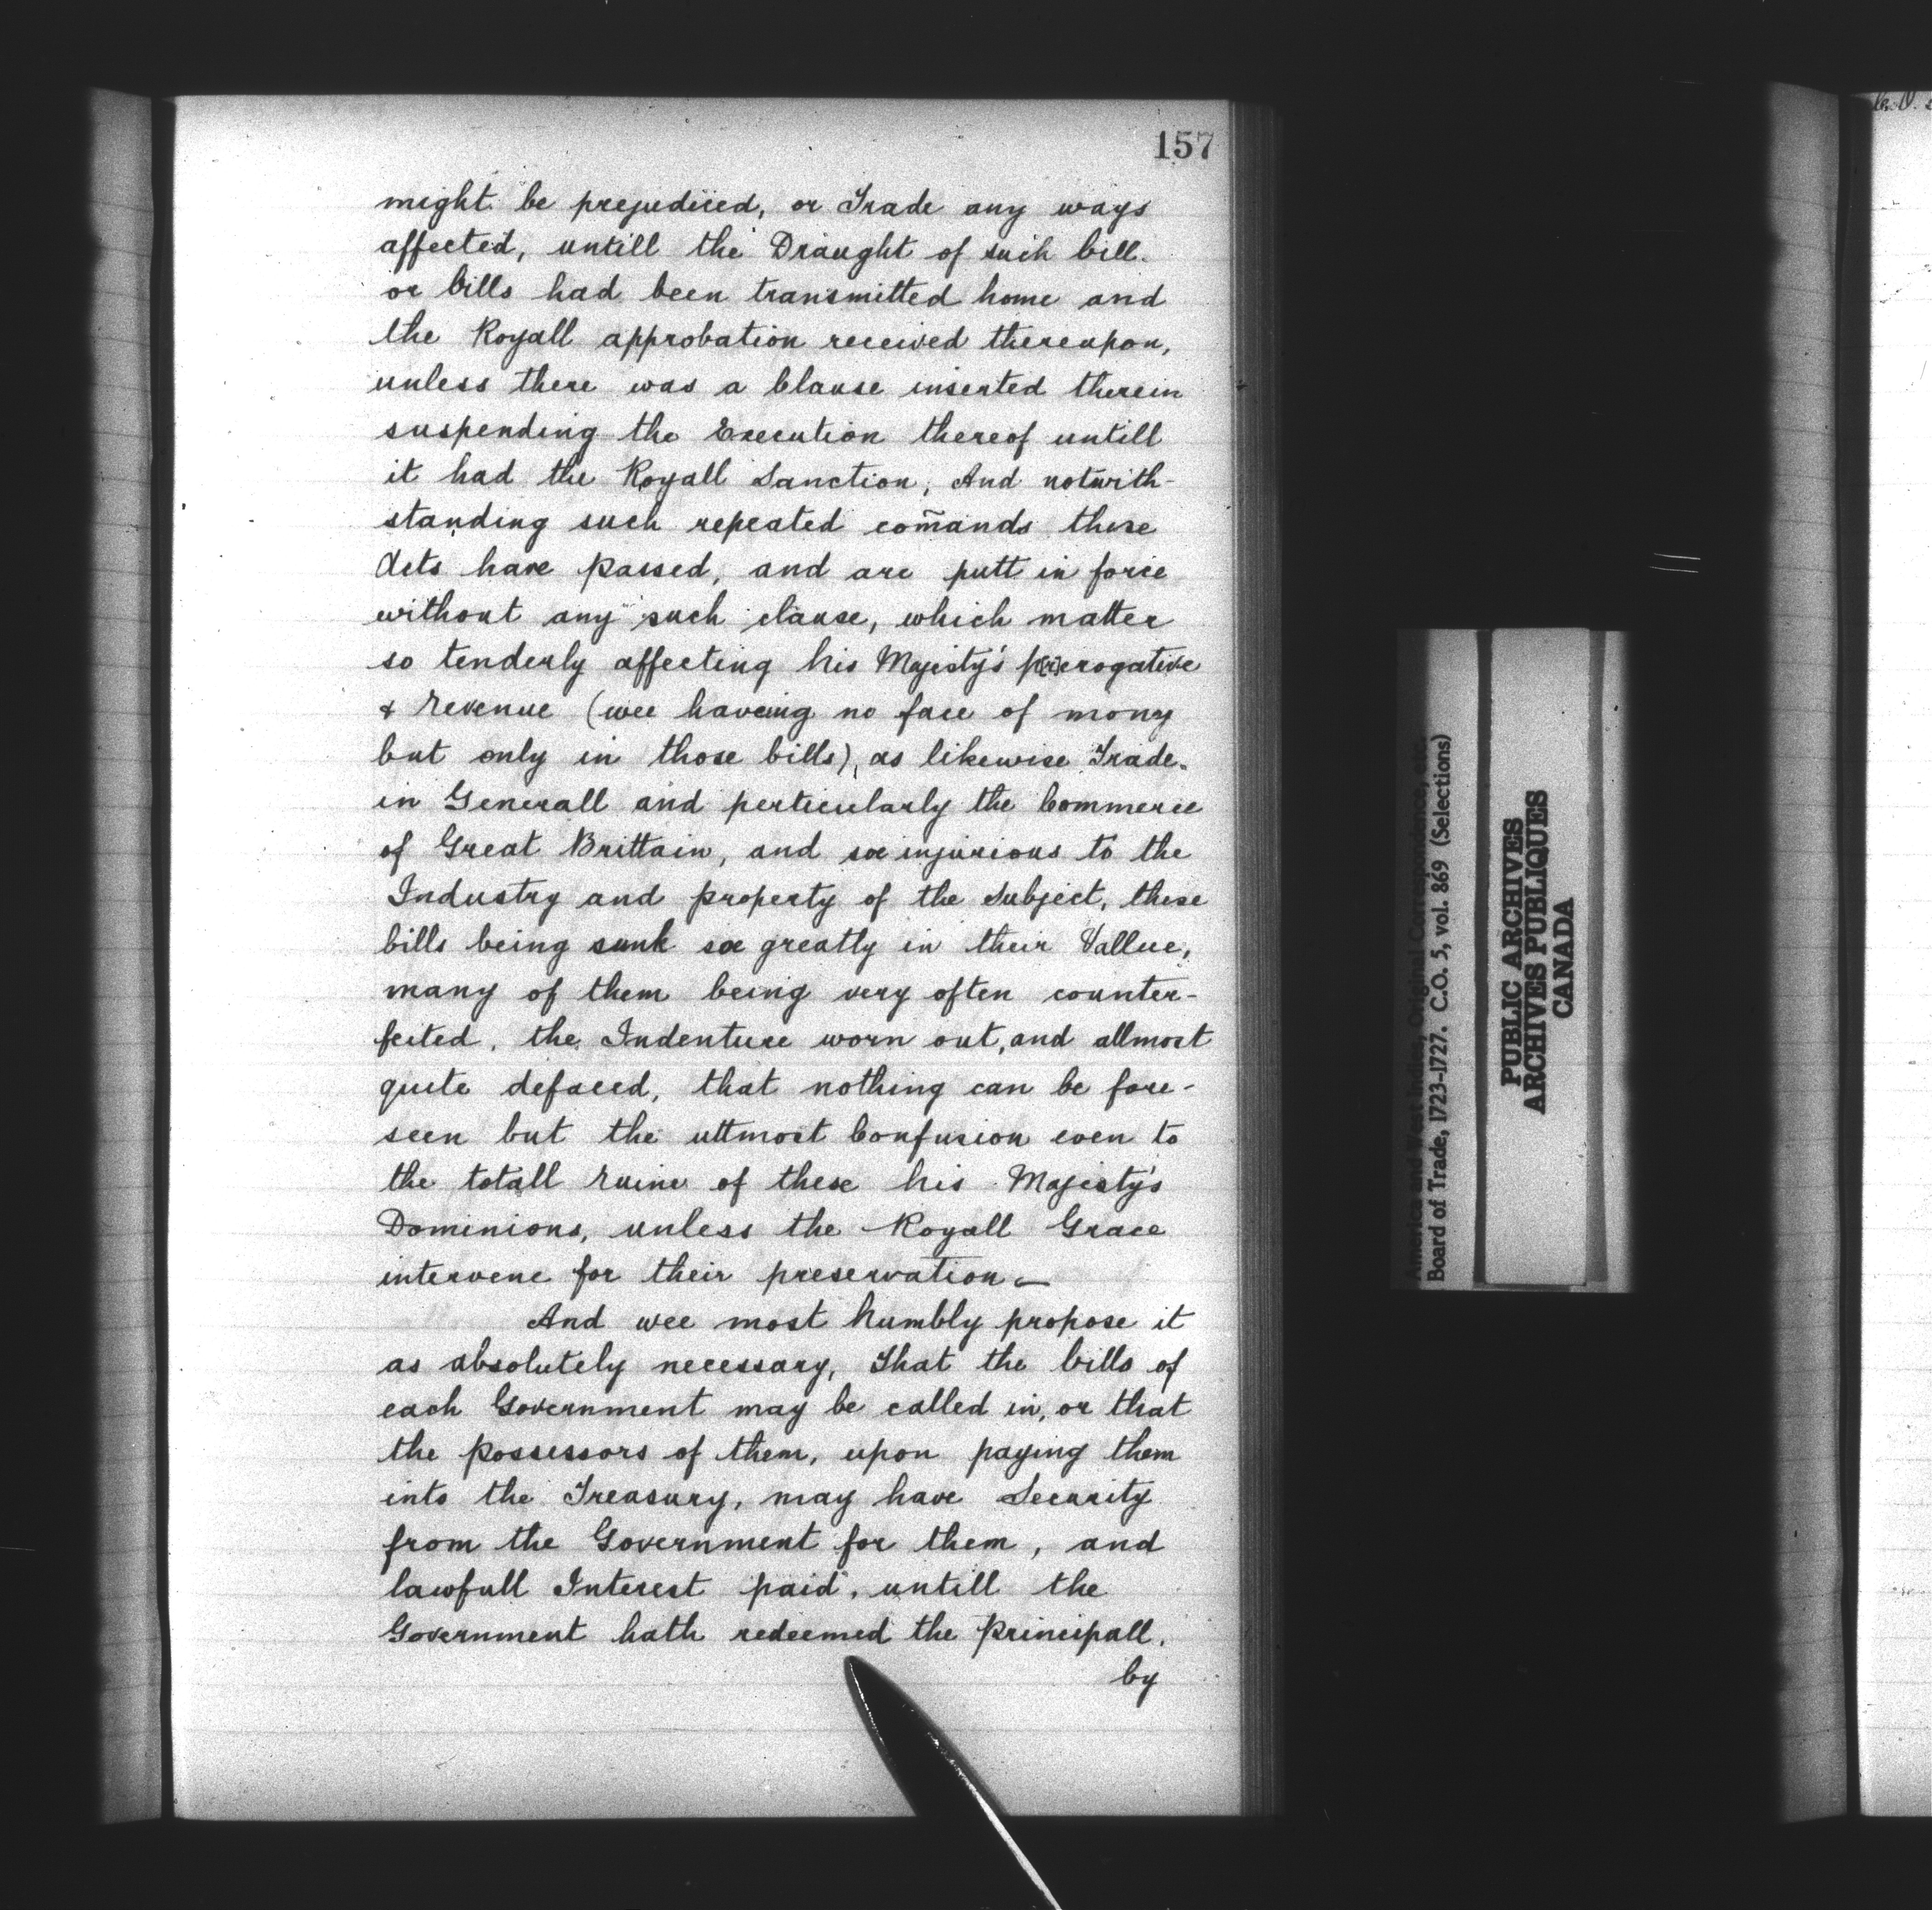 157
might be prejudiced, or Trade any ways
affected, untill the Draught of such bill.
or bills had been transmitted home and
the Royall approbation received thereupon,
unless there was a Clause inserted therein
suspending the Execution thereof untill
it had the Royall Sanction, And notwith-
standing such repeated com̄ands these
Acts have passed, and are putt in force
without any such clause, which matter
so tenderly affecting his Majesty's p(r)erogative
& Revenue (wee haveing no face of mony
but only in those bills), as likewise Trade.
in Generall and perticularly the Commerce
of Great Brittain, and soe injurious to the
Industry and property of the Subject, these
bills being sunk soe greatly in their Vallue,
many of them being very often counter-
feited, the Indenture worn out, and allmost
quite defaced, that nothing can be fore-
seen but the uttmost Confusion even to
the totall Ruine of these his Majesty's
Dominions, unless the Royall Grace
intervene for their preservation.—
And wee most humbly propose it
as absolutely necessary, That the bills of
each Government may be called in, or that
the possessors of them, upon paying them
into the Treasury, may have Security
from the Government for them, and
lawfull Interest paid, untill the
Government hath redeemed the Principall,
by
America and West Indies, Original Correspondence, etc.
Board of Trade, 1723-1727. C.O. 5, vol. 869 (Selections)
PUBLIC ARCHIVES
ARCHIVES PUBLIQUES
CANADA